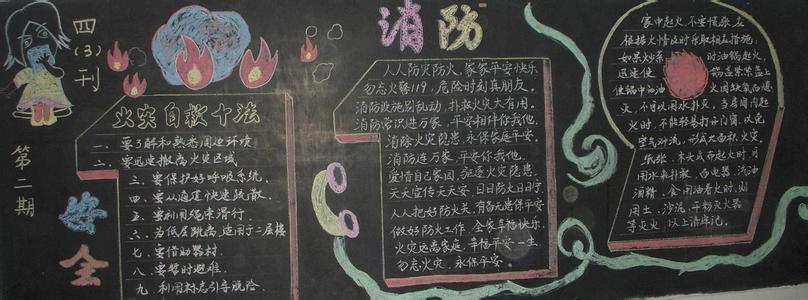 四(3)刊
第二期
安全
消防
火灾自救十法
一、要了解和熟悉周边环境
二、要迅速撤离火灾区域
三、要保护好呼吸系统,
四、要从通道快速疏散.
五、要利用绳索滑行.
六、为低层跳离,适用于二层楼
七、要借助器材.
八、要暂时避难.
九、利用标志引导脱险.
人人防灾防火,家家平安快乐
勿忘火警119,危险时刻真朋友.
消防设施别乱动,扑救火灾大有用.
消防常识进万家,平安相伴你我他.
消除火灾隐患,永保家庭平安.
消防连万家,平安你我他.
爱惜自己家园,火灾隐患.
天天宣传天天安,日日防火日日宁.
人人把好防火关,有备无患保平安
做好防火工作,全家幸福快乐
火灾远离家庭,幸福平安一生.
勿忘火灾,永保平安.
家中起火,不要慌张,应
根据火情及时采取相应措施:
如果炒菜时油锅起火,
迅速使锅盖紧紧盖上
使锅中油油火因缺氧而熄
灭,不可以用水扑灭.当房间内起
火时,不能轻易打开门窗,以免
空气对流,形成大面积火灾.
纸张、木头或布起火时,可
用水来扑救,而电器、汽油
酒精、食用油着火时,则
用土、沙泥、干粉灭火器
等灭火,以上请牢记.